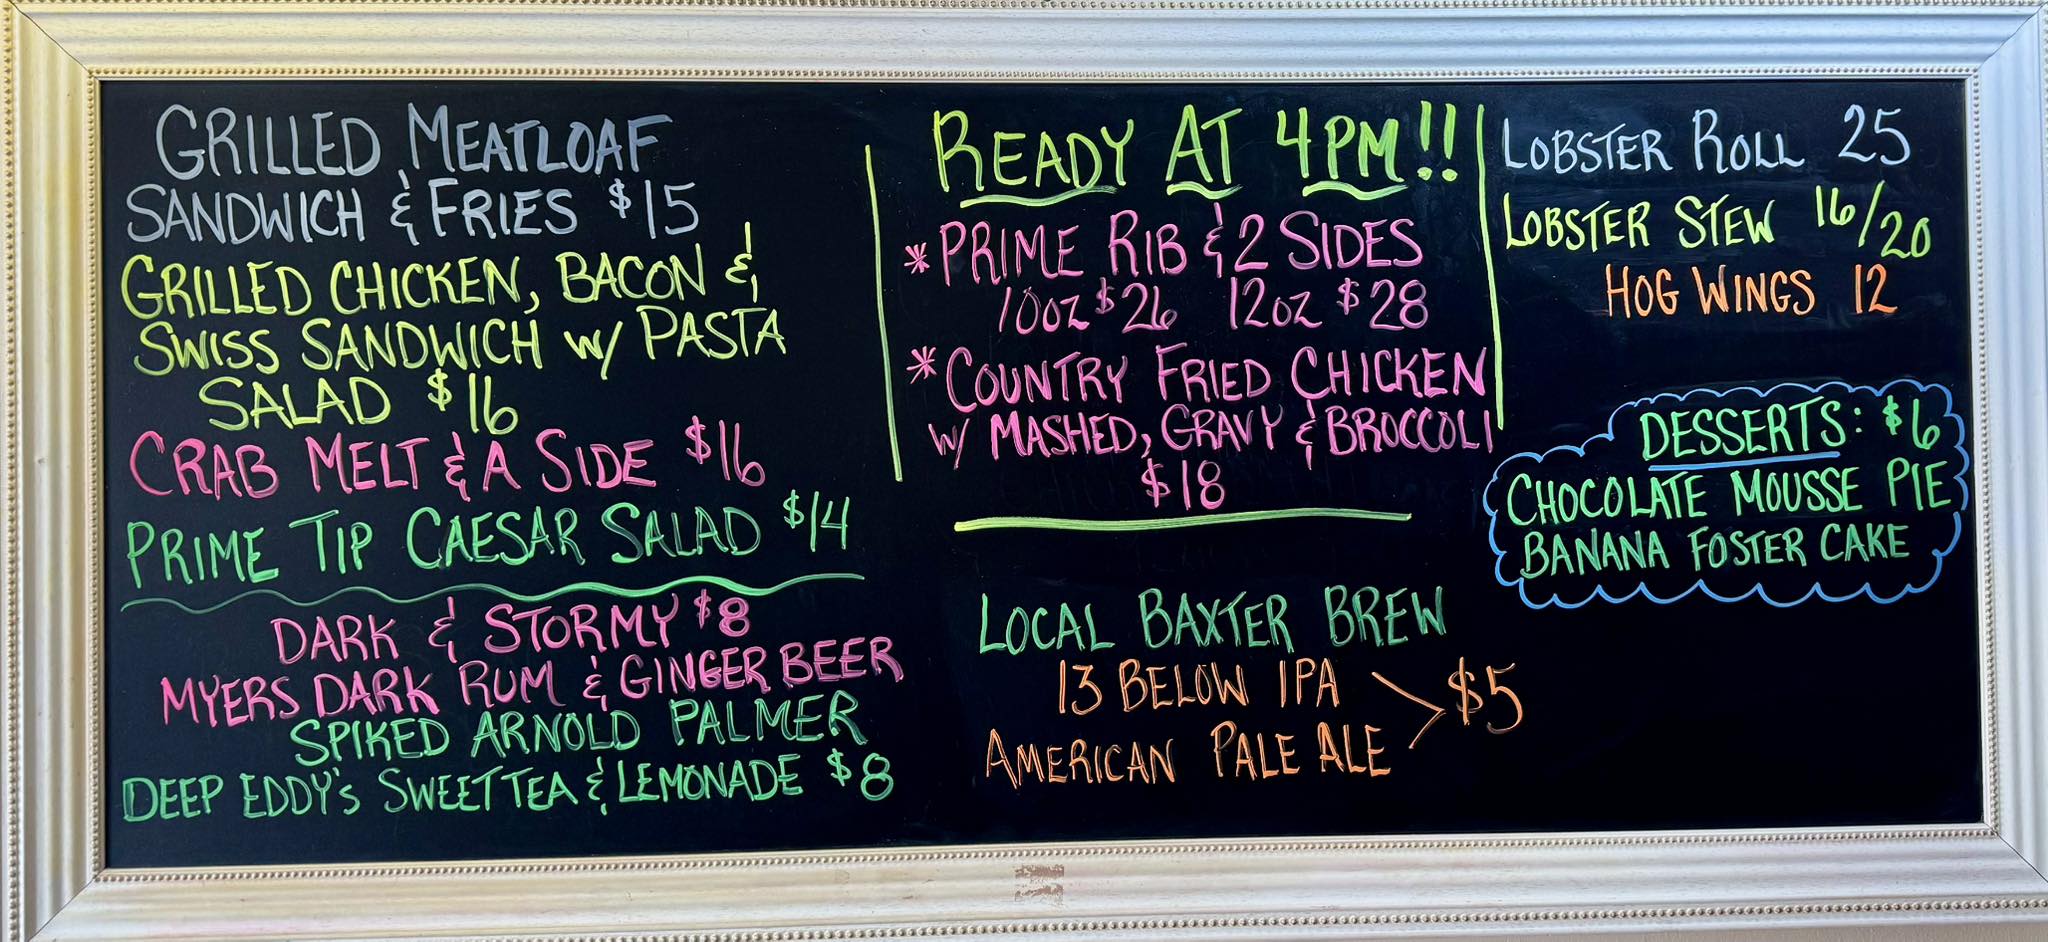 GRILLED MEATLOAF
SANDWICH & FRIES $15
GRILLED CHICKEN, BACON &
SWISS SANDWICH W/ PASTA
SALAD $16
CRAB MELT & A SIDE $16
PRIME TIP CAESAR SALAD $14
DARK & STORMY $8
MYERS DARK RUM & GINGER BEER
SPIKED ARNOLD PALMER
DEEP EDDY'S SWEET TEA & LEMONADE $8
READY AT 4PM!!
*PRIME RIB & 2 SIDES
10oz $26 12oz $28
*COUNTRY FRIED CHICKEN
W/ MASHED, GRAVY & BROCCOLI
$18
LOCAL BAXTER BREW
13 BELOW IPA
AMERICAN PALE ALE > $5
LOBSTER ROLL 25
LOBSTER STEW 16/20
HOG WINGS 12
DESSERTS: $6
CHOCOLATE MOUSSE PIE
BANANA FOSTER CAKE